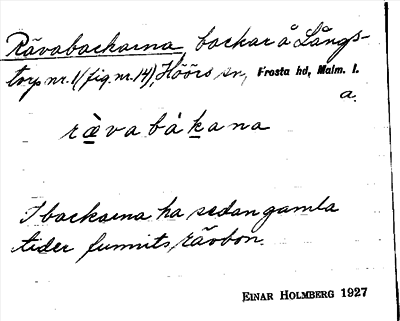 Rävabackarna, backar å Långs-
torp nr. 1 (fig. nr. 14), Höörs sn, Frosta hd, Malm. l.
a.
rä̀vabákana
I backarna ha sedan gamla
tider funnits rävbon.
EINAR HOLMBERG 1927